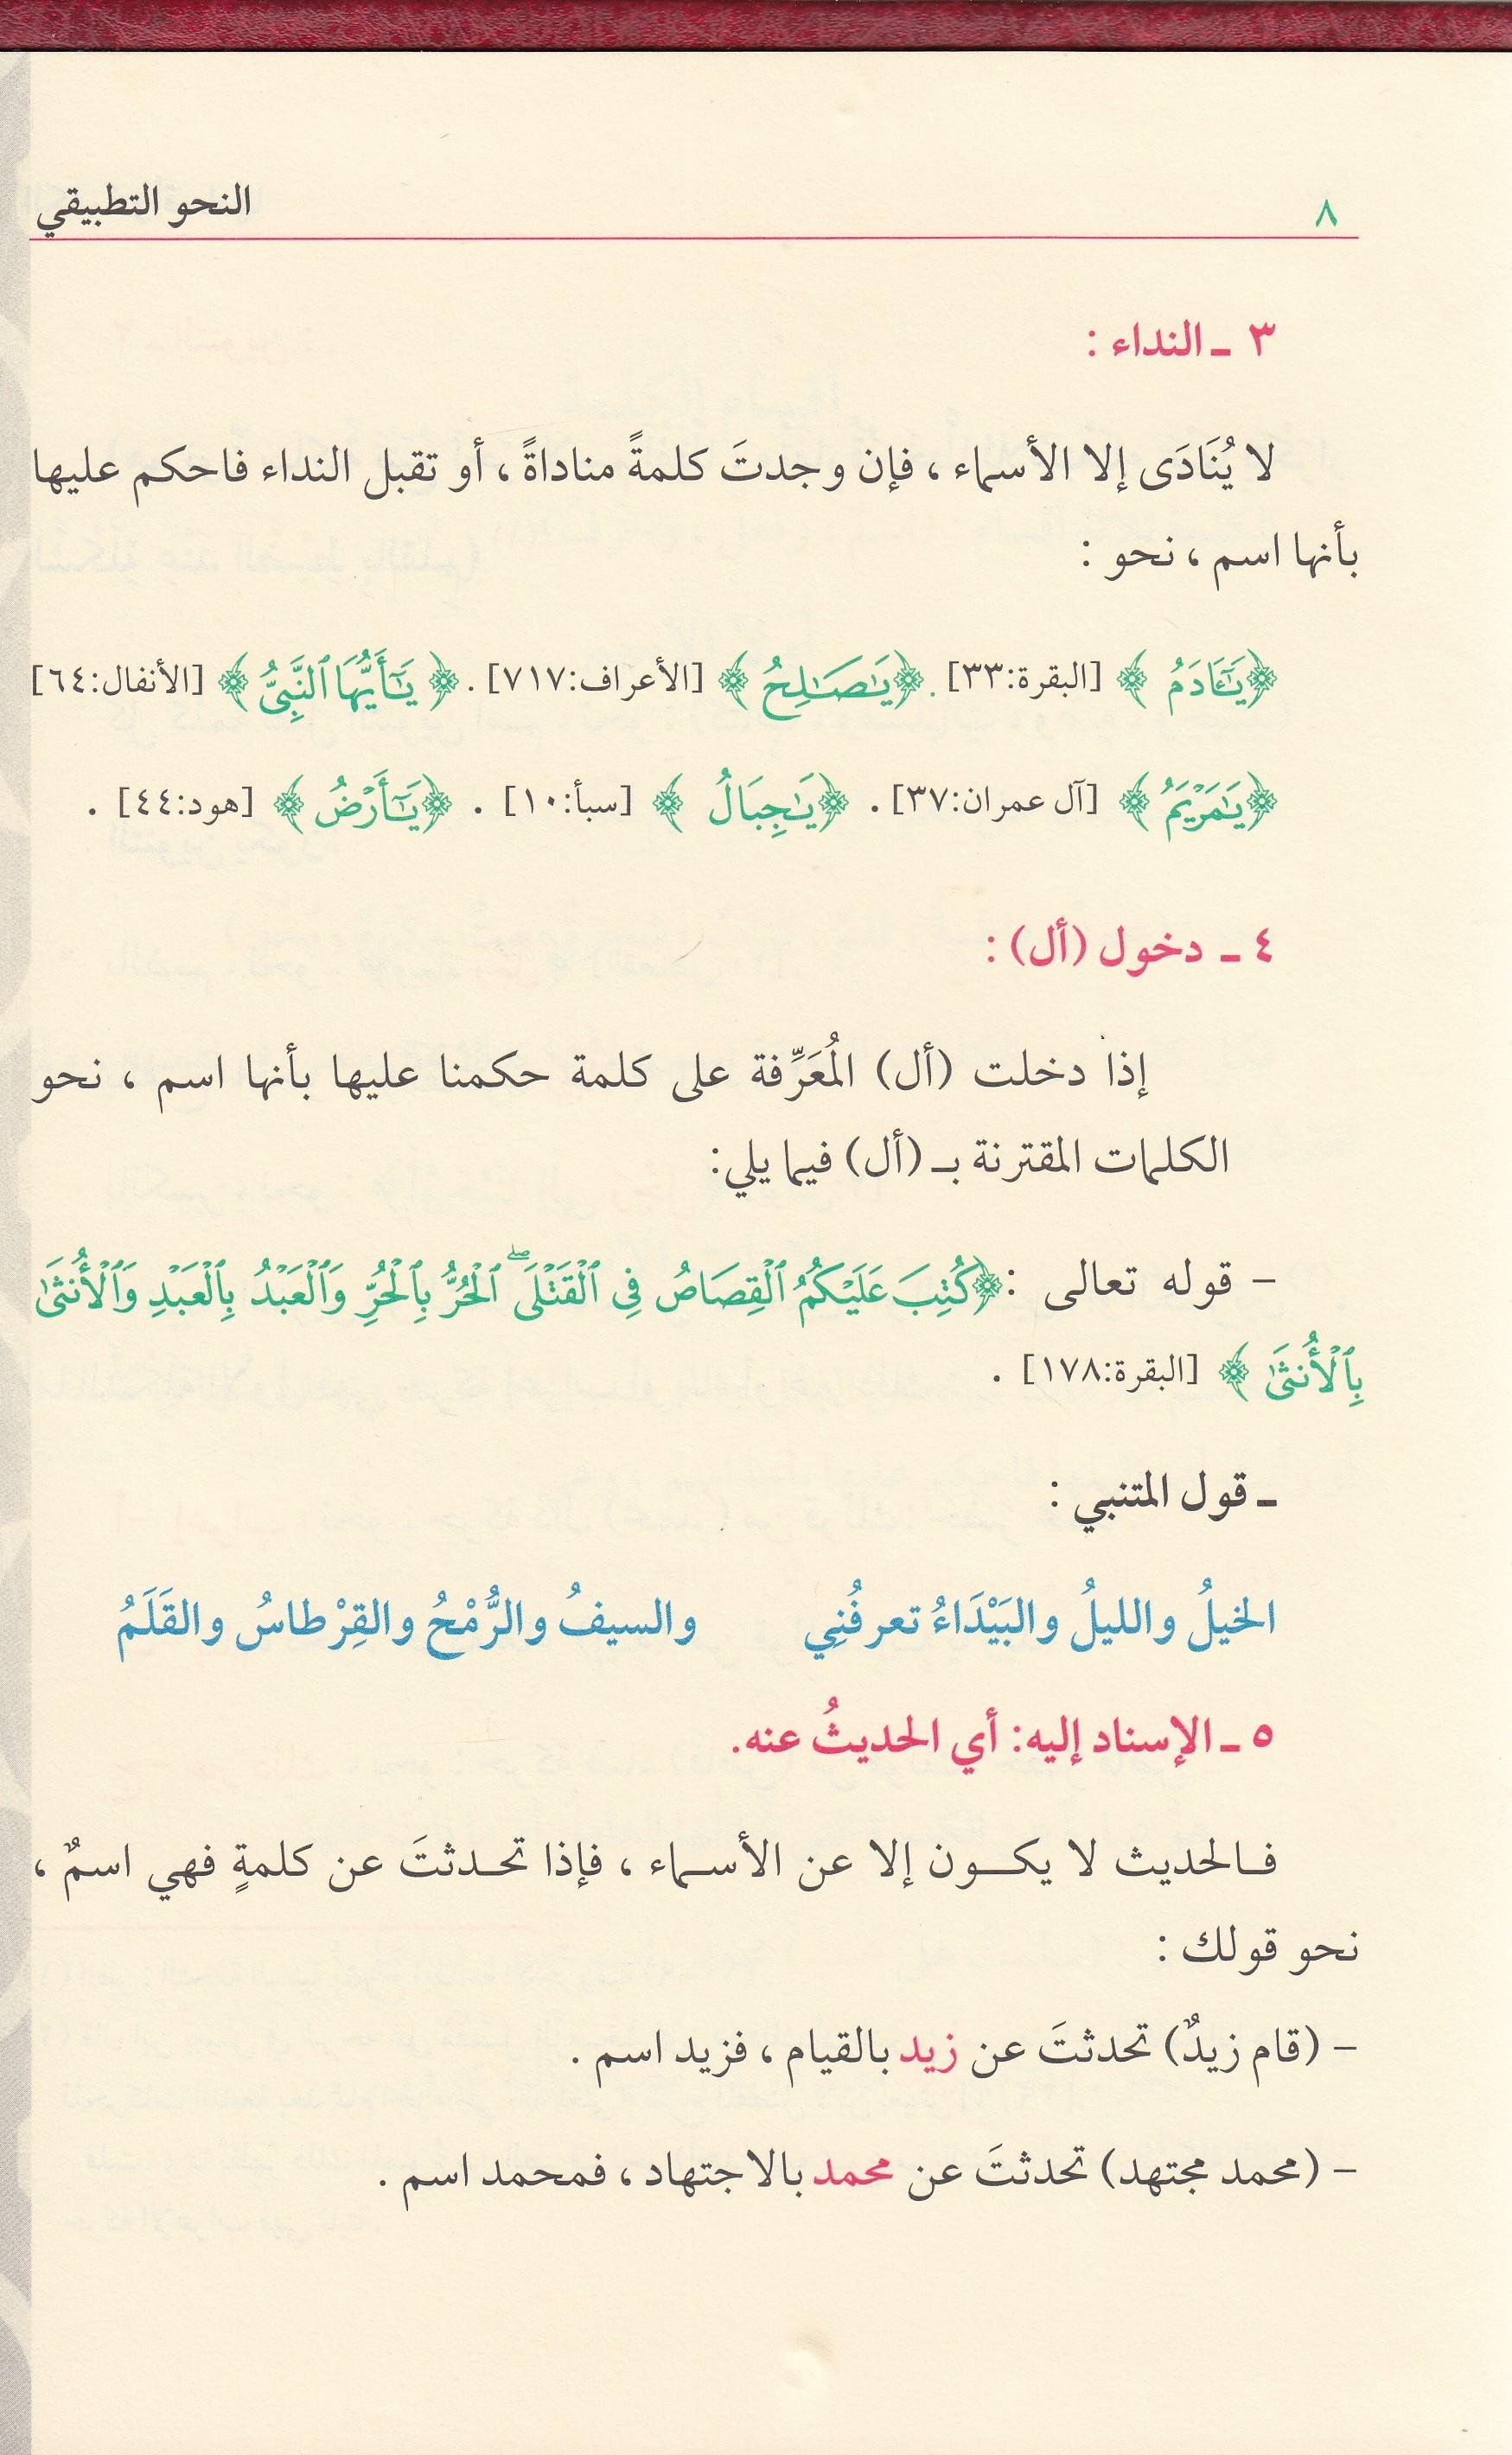 النحو التطبيقي ٨
٣ ـ النداء :
لا يُنَادَى إلا الأسماء ، فإن وجدتَ كلمةً مناداةً ، أو تقبل النداء فاحكم عليها
بأنها اسم ، نحو :
﴿يَـٰٓـَٔادَمُ ﴾ [البقرة:٣٣] .﴿يَـٰصَـٰلِحُ ﴾ [الأعراف:٧١٧] .﴿ يَـٰٓأَيُّهَا ٱلنَّبِىُّ ﴾ [الأنفال:٦٤]
﴿يَـٰمَرْيَمُ ﴾ [آل عمران:٣٧] . ﴿يَـٰجِبَالُ ﴾ [سبأ:١٠] . ﴿يَـٰٓأَرْضُ ﴾ [هود:٤٤] .
٤ ـ دخول (أل) :
إذا دخلت (أل) المُعَرِّفة على كلمة حكمنا عليها بأنها اسم ، نحو
الكلمات المقترنة بـ (أل) فيما يلي:
– قوله تعالى :﴿كُتِبَ عَلَيْكُمُ ٱلْقِصَاصُ فِى ٱلْقَتْلَى ۖ ٱلْحُرُّ بِٱلْحُرِّ وَٱلْعَبْدُ بِٱلْعَبْدِ وَٱلْأُنثَىٰ
بِٱلْأُنثَىٰ ﴾ [البقرة:١٧٨] .
ـ قول المتنبي :
الخيلُ والليلُ والبَيْدَاءُ تعرفُنِي والسيفُ والرُّمْحُ والقِرْطاسُ والقَلَمُ
٥ ـ الإسناد إليه: أي الحديثُ عنه.
فـالحديث لا يكـون إلا عن الأسـماء ، فإذا تحـدثتَ عن كلمةٍ فهي اسمٌ ،
نحو قولك :
– (قام زيدٌ) تحدثتَ عن زيد بالقيام ، فزيد اسم .
– (محمد مجتهد) تحدثتَ عن محمد بالاجتهاد ، فمحمد اسم .